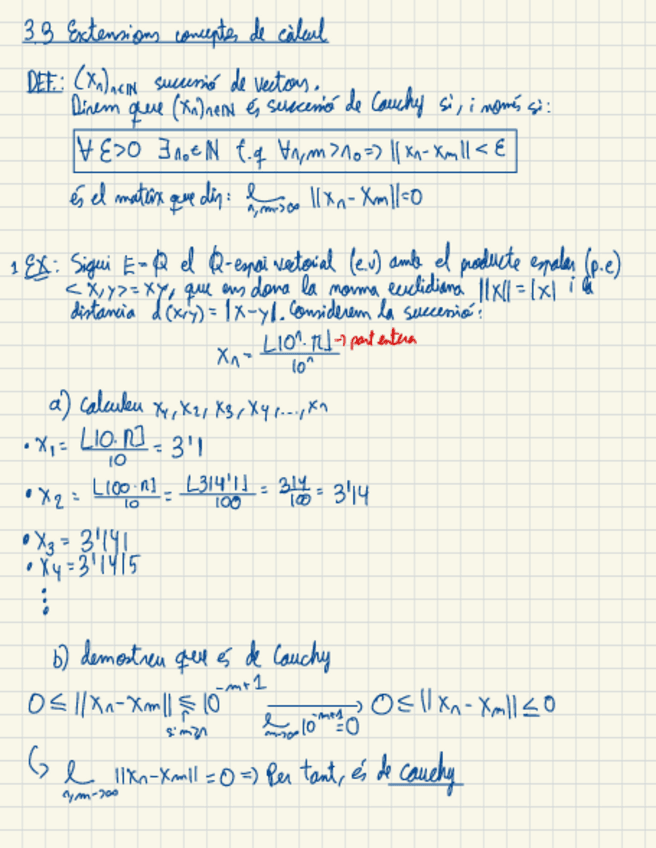 3.9 Extensions conceptes de càlcul
DEF.: (Xn)n∈ℕ successió de vectors.
Direm que (Xn)n∈ℕ és successió de Cauchy si, i només si:
∀ε>0 ∃n₀∈ℕ t.q ∀n,m>n₀ => ||Xn-Xm|| < ε
és el mateix que dir: lim n,m->∞ ||Xn-Xm||=0
1 EX: Sigui E=ℚ el ℚ-espai vectorial (e.v) amb el producte escalar (p.e)
<x,y>=xy, que ens dona la norma euclidiana ||x||=|x| i la
distancia d(x,y)=|x-y|. Considerem la successió:
Xn = ⌊10ⁿ·π⌋ / 10ⁿ -> part entera
a) Calculeu X1, X2, X3, X4, ..., Xn
• X1 = ⌊10·π⌋ / 10 = 3'1
• X2 = ⌊100·π⌋ / 10 = ⌊314'1⌋ / 100 = 314 / 100 = 3'14
• X3 = 3'141
• X4 = 3'1415
⋮
b) demostreu que és de Cauchy
0 ≤ ||Xn-Xm|| ≤ 10^(-m+1) lim 10^(-m+1) = 0 → 0 ≤ ||Xn-Xm|| ≤ 0
lim n,m->∞ ||Xn-Xm|| = 0 => Per tant, és de cauchy